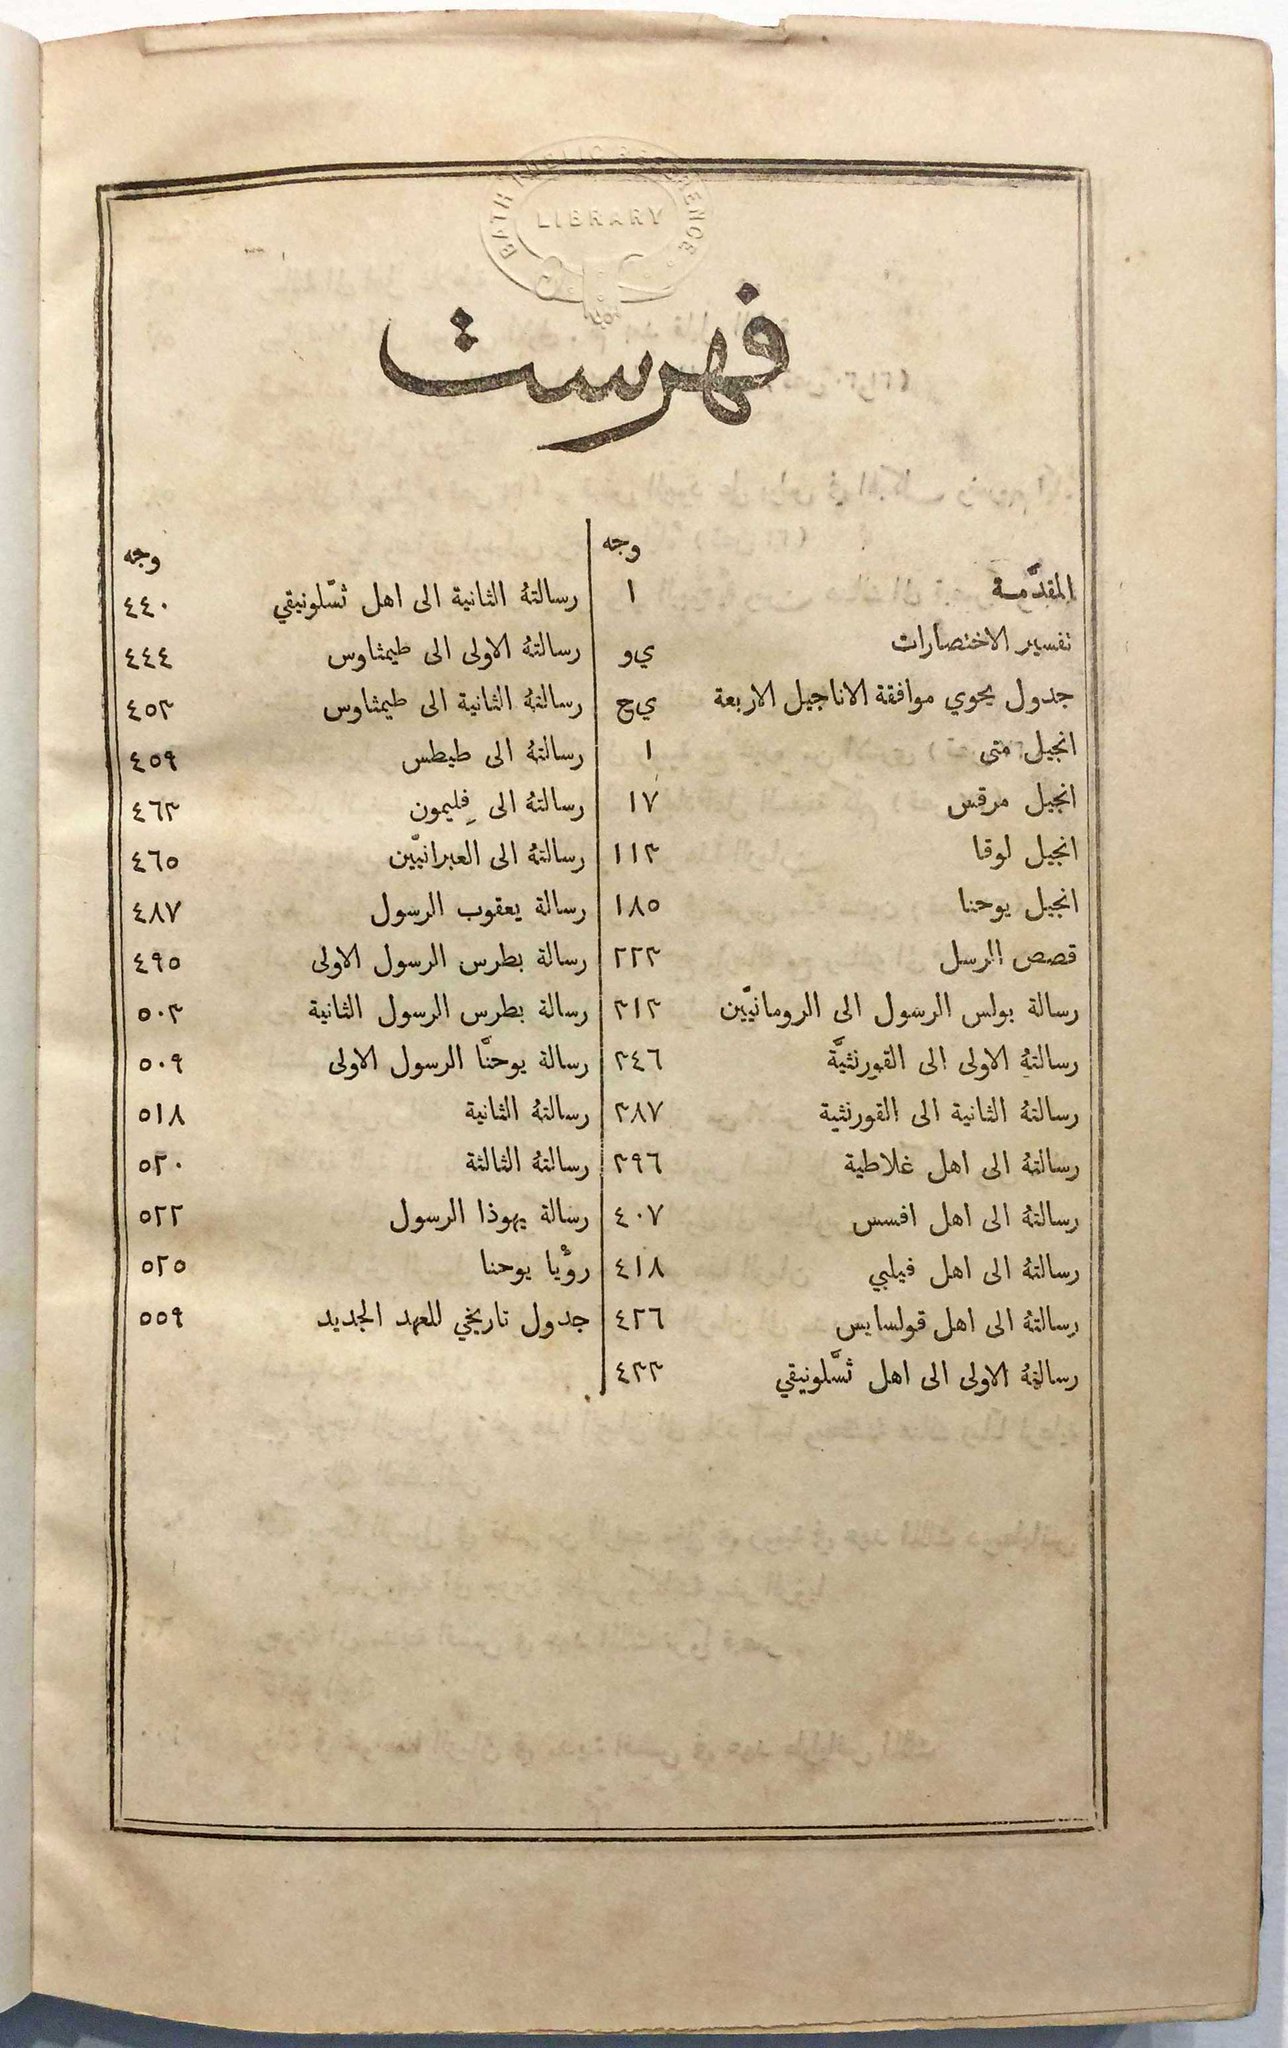 BATH PUBLIC REFERENCE
LIBRARY
فهرست
وجه
المقدَّمة ا
تفسير الاختصارات ي‍و
جدول يحوي موافقة الاناجيل الاربعة ي‍ح
انجيل متى ١
انجيل مرقس ١٧
انجيل لوقا ١١٣
انجيل يوحنا ١٨٥
قصص الرسل ٢٢٣
رسالة بولس الرسول الى الرومانيّين ٣١٣
رسالتهُ الاولى الى القورنثيَّة ٣٤٦
رسالتهُ الثانية الى القورنثية ٣٨٧
رسالتهُ الى اهل غلاطية ٣٩٦
رسالتهُ الى اهل افسس ٤٠٧
رسالتهُ الى اهل فيلبي ٤١٨
رسالتهُ الى اهل قولسايس ٤٢٦
رسالتهُ الاولى الى اهل ثسَّلونيقي ٤٣٣
وجه
رسالتهُ الثانية الى اهل ثسّلونيقي ٤٤٠
رسالتهُ الاولى الى طيمثاوس ٤٤٤
رسالتهُ الثانية الى طيمثاوس ٤٥٣
رسالتهُ الى طيطس ٤٥٩
رسالتهُ الى فِليمون ٤٦٣
رسالتهُ الى العبرانيّين ٤٦٥
رسالة يعقوب الرسول ٤٨٧
رسالة بطرس الرسول الاولى ٤٩٥
رسالة بطرس الرسول الثانية ٥٠٣
رسالة يوحنَّا الرسول الاولى ٥٠٩
رسالتهُ الثانية ٥١٨
رسالتهُ الثالثة ٥٢٠
رسالة يهوذا الرسول ٥٢٢
رؤْيا يوحنا ٥٢٥
جدول تاريخي للعهد الجديد ٥٥٩